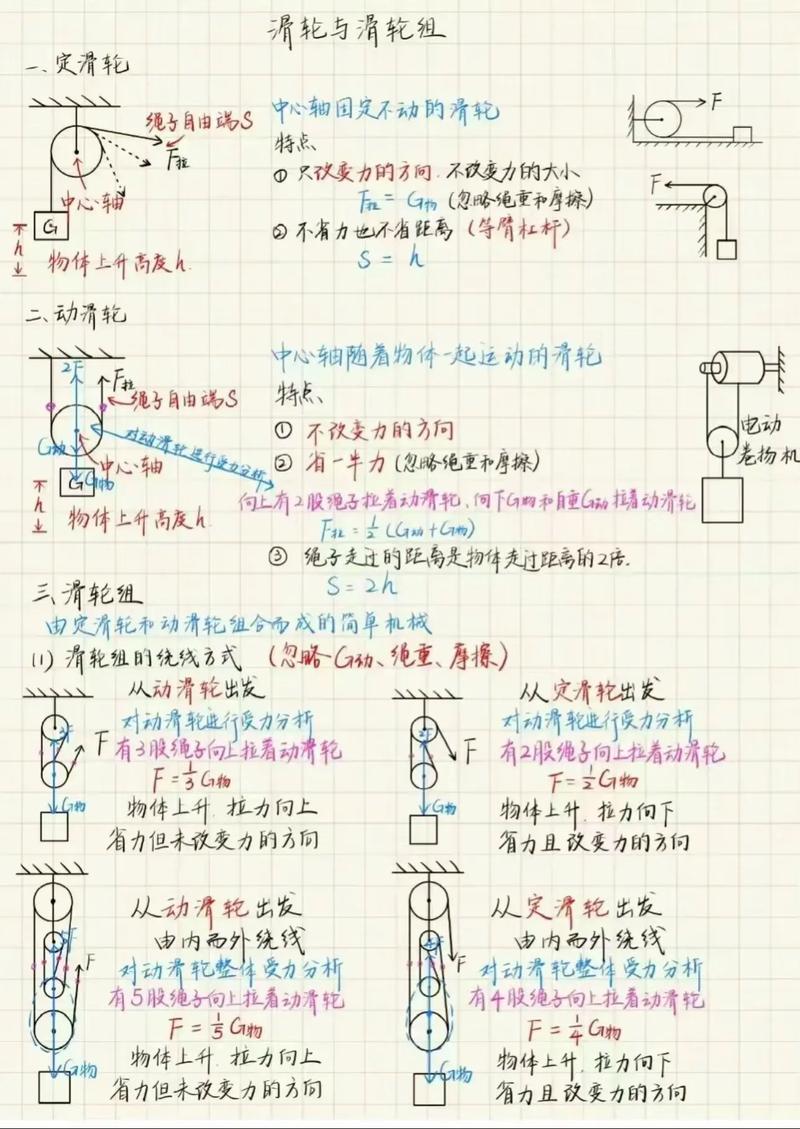 滑轮与滑轮组
一、定滑轮
绳子自由端S
F拉
中心轴
G
h
物体上升高度h.
中心轴固定不动的滑轮
特点
① 只改变力的方向.不改变力的大小
F拉 = G物 (忽略绳重和摩擦)
② 不省力也不省距离 (等臂杠杆)
S = h
F
F
二、动滑轮
2F
F拉
绳子自由端S
对动滑轮进行受力分析
G动
中心轴
G
G物
h
物体上升高度h.
中心轴随着物体一起运动的滑轮
特点
① 不改变力的方向
② 省一半力 (忽略绳重和摩擦)
向上有2股绳子拉着动滑轮、向下G物和自重G动拉着动滑轮
F拉 = 1/2 (G动+G物)
③ 绳子走过的距离是物体走过距离的2倍.
S = 2h
电动
卷扬机
三、滑轮组
由定滑轮和动滑轮组合而成的简单机械
(1) 滑轮组的绕线方式 (忽略G动、绳重、摩擦)
从动滑轮出发
对动滑轮进行受力分析
有3股绳子向上拉着动滑轮
F = 1/3 G物
物体上升.拉力向上
省力但未改变力的方向
3F
F
G物
从定滑轮出发
对动滑轮进行受力分析
有2股绳子向上拉着动滑轮
F = 1/2 G物
物体上升.拉力向下
省力且改变力的方向
2F
F
G物
从动滑轮出发
由内而外绕线
对动滑轮整体受力分析
有5股绳子向上拉着动滑轮
F = 1/5 G物
物体上升.拉力向上
省力但未改变力的方向
5F
F
G物
从定滑轮出发
由内而外绕线
对动滑轮整体受力分析
有4股绳子向上拉着动滑轮
F = 1/4 G物
物体上升.拉力向下
省力且改变力的方向
4F
F
G物